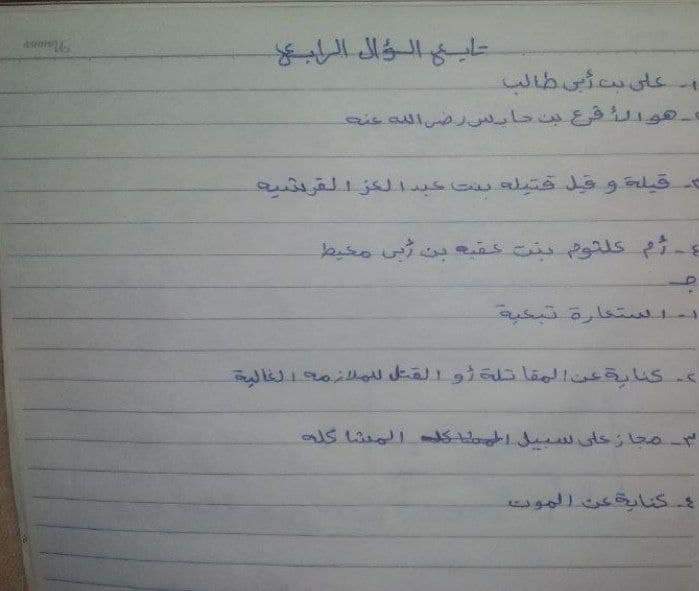 تابع السؤال الرابع
١- على بن أبى طالب
٢- هو الأقرع بن حابس رضى الله عنه
٣- قيلة وقيل قتيله بنت عبد العز القرشيه
٤- أم كلثوم بنت عقبه بن أبى معيط
جـ
١- استعارة تبعية
٢- كناية عن المقاتلة أو القتل للملازمه الغالبة
٣- مجاز على سبيل المشاكله
٤- كناية عن الموت